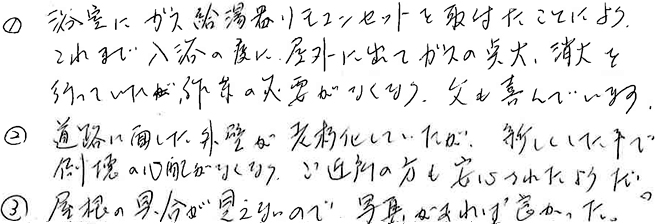 ① 浴室にガス給湯器リモコンセットを取付たことにより、
これまで入浴の度に屋外に出てガスの点火、消火を
行っていたが、作業の必要がなくなり、父も喜んでいます。
② 道路に面した外壁が老朽化していたが、新しくした事で
倒壊の心配がなくなり、ご近所の方も安心されたようだ。
③ 屋根の具合が見えないので、写真があれば良かった。